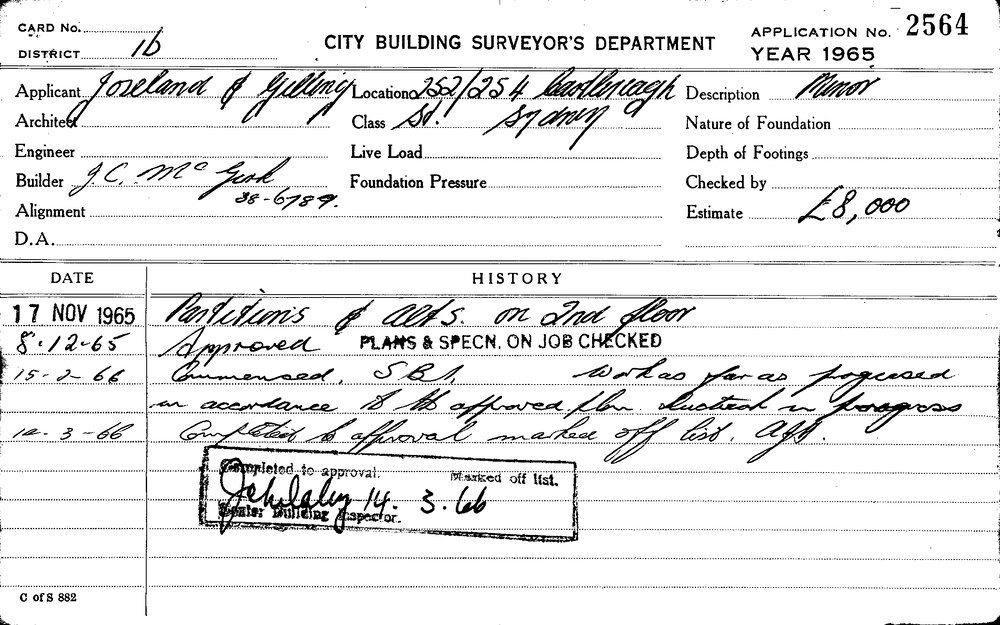 CARD No.
DISTRICT 1b
CITY BUILDING SURVEYOR'S DEPARTMENT
APPLICATION No. 2564
YEAR 1965
Applicant Joseland & Gilling Location 252/254 Castlereagh Description Minor
Architect Class St. Sydney Nature of Foundation
Engineer Live Load Depth of Footings
Builder J.C. Mc Foundation Pressure Checked by
38-6789.
Alignment Estimate £8,000
D.A.
DATE HISTORY
17 NOV 1965 Partitions & Alts. on 2nd floor
8-12-65 Approved PLANS & SPECN. ON JOB CHECKED
15-2-66 Commenced, S.B.I. Work as far as progressed
in accordance to the approved plan. in progress
14-3-66 Completed to approval marked off list.
Completed to approval. Marked off list.
14. 3.66
Senior Building Inspector.
C of S 882